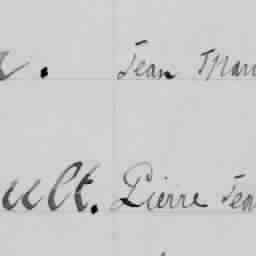 Jean Mari
ult. Pierre Jea